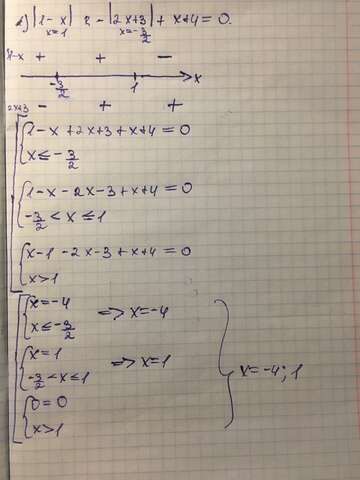 2) |1-x| 2 - |2x+3| + x+4 = 0.
x=1 x=-3/2
1-x + + -
-3/2 1 x
2x+3 - + +
{1-x+2x+3+x+4=0
x≤-3/2
{1-x-2x-3+x+4=0
-3/2<x≤1
{x-1-2x-3+x+4=0
x>1
{x=-4
x≤-3/2 => x=-4
{x=1
-3/2<x≤1 => x=1
{0=0
x>1
} x=-4; 1